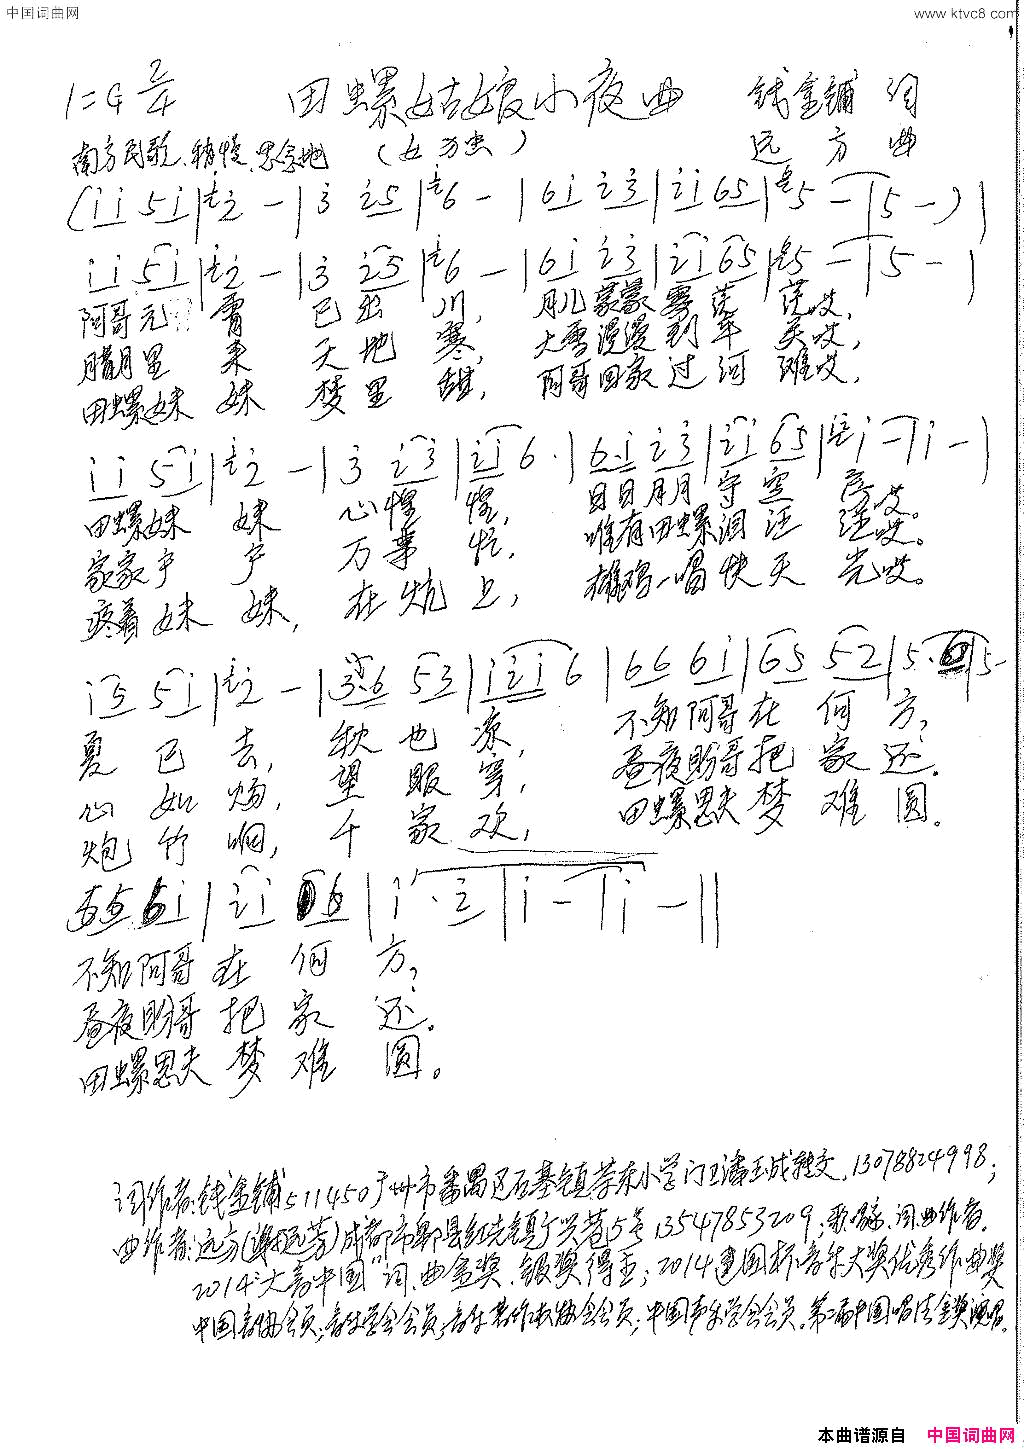 中国词曲网
www.ktvc8.com
1=G 2/4 田螺姑娘小夜曲 钱金铺 词
南方民歌、稍慢、思念地 (女独) 远方 曲
(i i 5 i | 2 - | 3 2 5 | 6 - | 6 i 2 3 | 2 i 6 5 | 5 - | 5 - ) |
i i 5 i | 2 - | 3 2 5 | 6 - | 6 i 2 3 | 2 i 6 5 | 5 - | 5 - |
阿哥元宵 已出川, 月儿蒙蒙雾茫茫哎,
腊月里来 天地寒, 大雪漫漫到年关哎,
田螺妹妹 梦里甜, 阿哥回家过河难哎,
i i 5 i | 2 - | 3 2 3 | 2 i 6 · | 6 · i 2 3 | 2 i 6 5 | i - | i - |
田螺妹妹 心惶惶, 日日月月守空房哎。
家家户户 万事忙, 唯有田螺泪汪汪哎。
疼着妹妹, 在炕上, 雄鸡一唱快天光哎。
i 5 5 i | 2 - | 3 · 6 5 3 | i 2 i 6 | 6 6 6 i | 6 5 5 2 | 5 · 6 | 5 -
夏已去, 秋也凉, 不知阿哥在何方?
心如焬, 望眼穿, 昼夜盼哥把家还.
炮竹响, 千家欢, 田螺思夫梦难圆.
5 5 6 i | 2 i 6 | i · 2 | i - | i - ||
不知阿哥在何方?
昼夜盼哥把家还.
田螺思夫梦难圆.
词作者:钱金铺511450广州市番禺区石基镇茶东小学门卫潘玉成转交,13078824998;
曲作者:远方(谢远芳)成都市郫县红光镇广兴巷5号13547853209;歌唱家.词.曲作者.
2014"大音中国"词.曲金奖.银奖得主;2014建国杯音乐大奖优秀作曲奖
中国音协会员;音乐学会会员;音乐著作权协会会员;中国声乐学会会员。第二届中国唱法金奖演唱.
本曲谱源自 中国词曲网